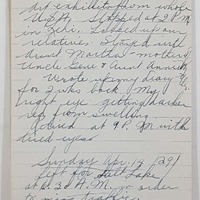 art exhibits from whole
U.S.A. Stopped at 2 P.M.
in Looked up our
relatives. Stayed with
Martha - mother
Uncle Gene & Aunt Annie
Wrote up my diary
for 2 wks back. My
right eye getting darker
red from swelling
at 9 P.M. with
tired eyes
Sunday Apr. 14 (29)
left for Salt Lake
at 5:30 A.M. in order
to miss traffic